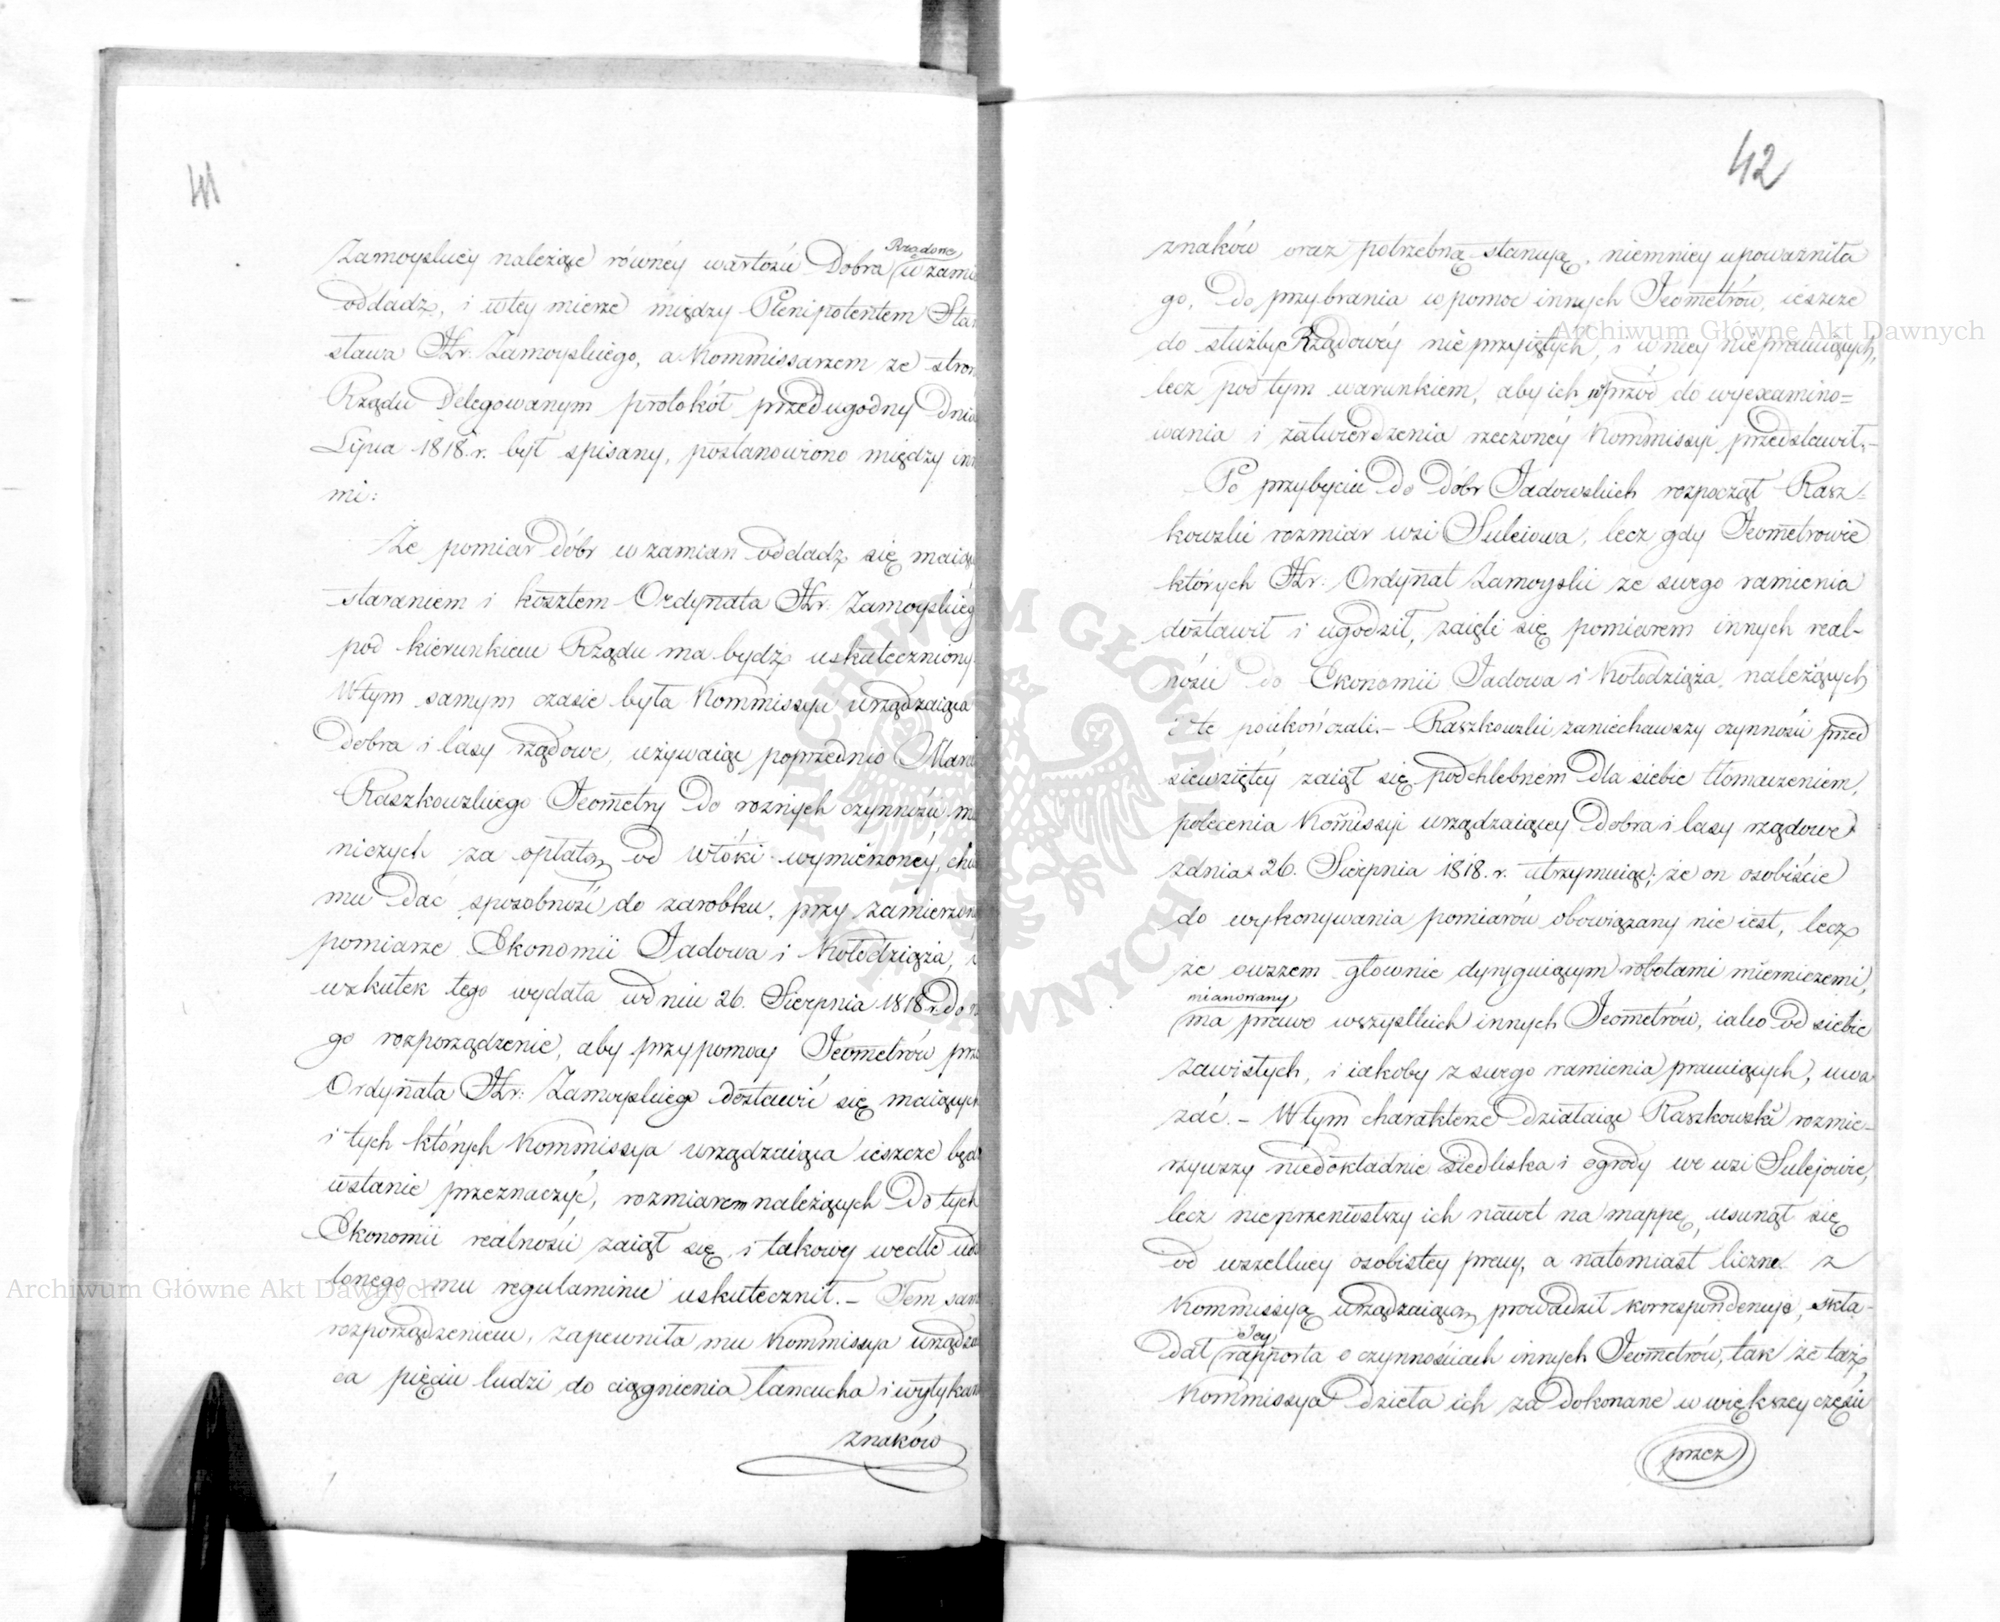 41
Zamoyskiey należące równéy wartości Dobra Rządowe w zami
oddadz, i wtey mierze między Plenipotentem Sta
sława Hr: Zamoyskiego, a Kommissarzem ze stron
Rządu Delegowanym protokół przedugodny dnia
Lipca 1818. r. był spisany, postanowiono między in
mi:
Że pomiar dóbr w zamian oddadz się maią
staraniem i kosztem Ordynata Hr: Zamoyskieg
pod kierunkiem Rządu ma bydz uskuteczniony
Wtym samym czasie była Kommissyia urządzaiąca
Dobra i lasy rządowe, używaiąc poprzednio
Raszkowskiego Jeometry do roznych czynności
niczych za opłatą od włóki wymierzonéy,
mu dać sposobność do zarobku, przy zamierzon
pomiarze Ekonomii Jadowa i Kołodziąża,
wskutek tego wydała w dniu 26. Sierpnia 1818 r. do
go rozporządzenie, aby przy pomocy Jeometrów prz
Ordynata Hr: Zamoyskiego dostawić się maiących
i tych których Kommissya urządzaiąca ieszcze będ
wstanie przeznaczyć, rozmiarem należących do tych
Ekonomii realności zaiął się, i takowy wedle ud
lonego mu regulaminu uskutecznił. – Tem sam
rozporządzeniem, zapewniła mu Kommissya urządza
ca pięciu ludzi do ciągnienia łancucha i wytykan
znaków
42
znaków oraz potrzebną stancyą, niemniey upoważniła
go, do przybrania w pomoc innych Jeometrów, ieszcze
do służby Rządowéy nieprzyiętych, i w niey niepracuiących,
lecz pod tym warunkiem, aby ich wprzód do wyexamino=
wania i zatwierdzenia rzeczonéy Kommissyi przedstawił. –
Po przybyciu do dóbr Jadowskich rozpoczął Rasz=
kowski rozmiar wsi Suleiowa, lecz gdy Jeometrowie
których Hr: Ordynat Zamoyski ze swego ramienia
dostawił i ugodził, zaięli się pomiarem innych real-
ności do Ekonomii Jadowa i Kołodziąża, należących
i te poukończali. – Raszkowski zaniechawszy czynności przed
siewziętéy zaiął się podchlebném dla siebie tłomaczeniem,
polecenia Komissyi urządzaiącey dobra i lasy rządowe
z dnia 26. Sierpnia 1818. r. utrzymuiąc, że on osobiście
do wykonywania pomiarów obowiązany nie iest, lecz
że owszem głownie dyryguiącym robotami mierniczemi,
mianowany
ma prawo wszystkich innych Jeometrów, iako od siebie
zawisłych, i iakoby z swego ramienia pracuiących, uwa
żać. – Wtym charakterze działaiąc Raszkowski rozmie-
rzywszy niedokładnie siedliska i ogrody we wsi Sulejowie,
lecz nieprzeniosłszy ich nawet na mappę, usunął się
od wszelkiey osobistey pracy, a natomiast liczne z
Kommissyią urządzaiącą prowadził korrespondencyje, skła-
dał Jey rapporta o czynnościach innych Jeometrów, tak że taż
Kommissya dzieła ich za dokonane w większey części
przez
Archiwum Główne Akt Dawnych
Archiwum Główne Akt Dawnych
ARCHIWUM GŁÓWNE AKT DAWNYCH